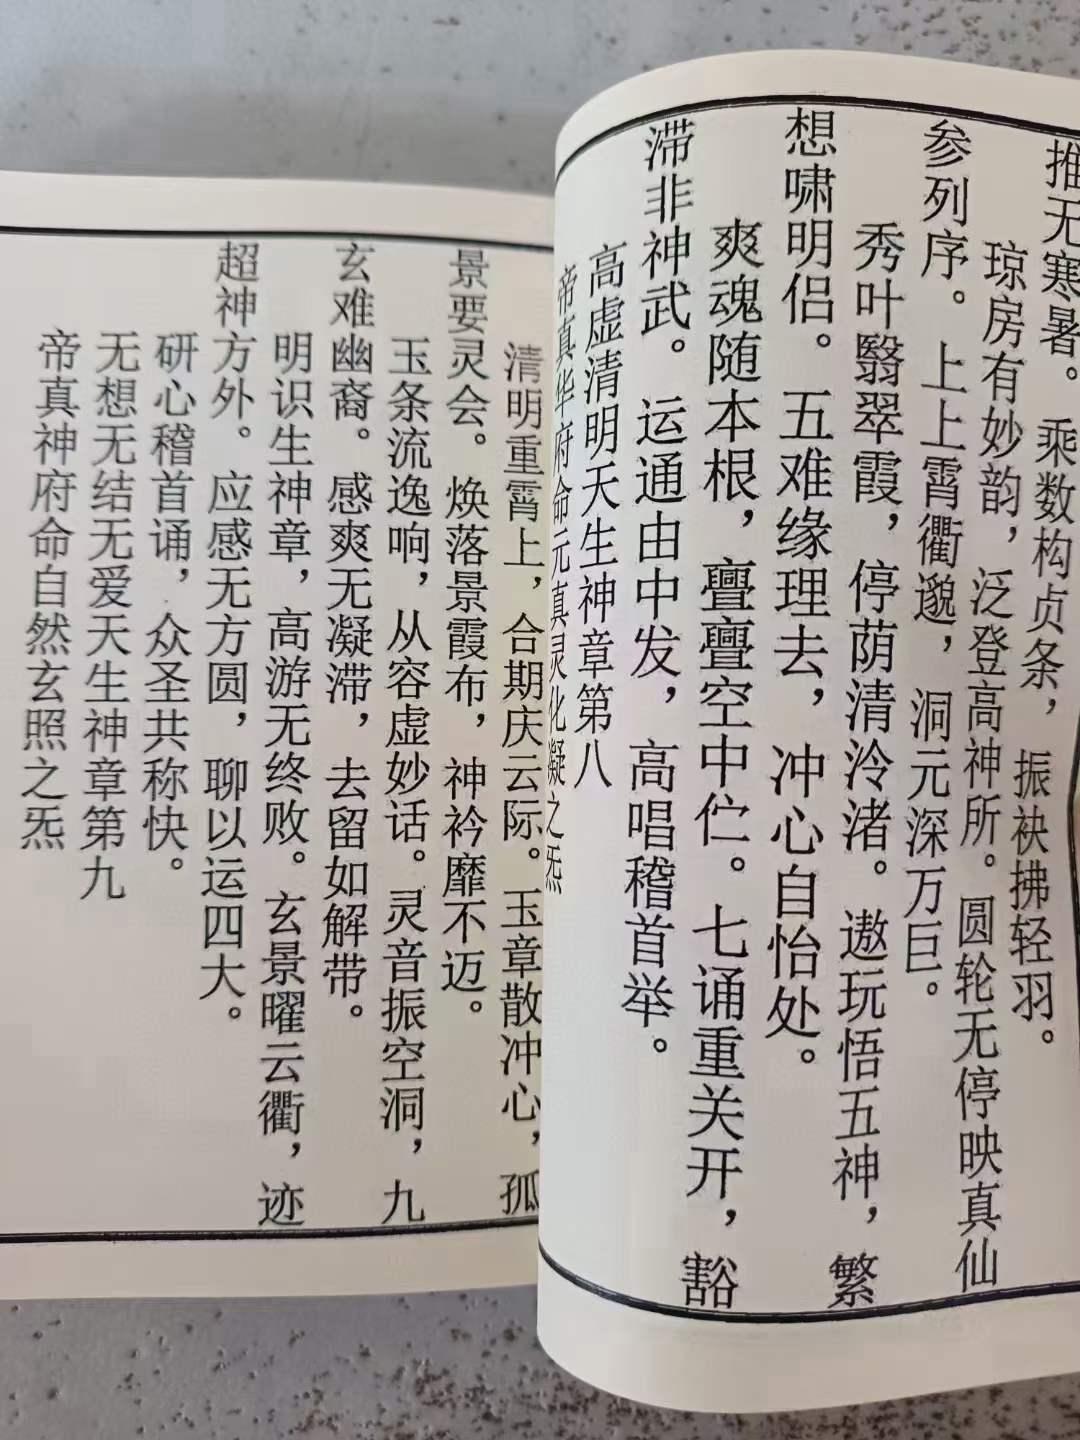 推无寒暑。乘数构贞条，振袂拂轻羽。
琼房有妙韵，泛登高神所。圆轮无停映真仙
参列序。上上霄衢邈，洞元深万巨。
秀叶翳翠霞，停荫清泠渚。遨玩悟五神，繁
想啸明侣。五难缘理去，冲心自怡处。
爽魂随本根，亹亹空中伫。七诵重关开，豁
滞非神武。运通由中发，高唱稽首举。
高虚清明天生神章第八
帝真华府命元真灵化凝之炁
清明重霄上，合期庆云际。玉章散冲心，孤
景要灵会。焕落景霞布，神衿靡不迈。
玉条流逸响，从容虚妙话。灵音振空洞，九
玄难幽裔。感爽无凝滞，去留如解带。
明识生神章，高游无终败。玄景曜云衢，迹
超神方外。应感无方圆，聊以运四大。
研心稽首诵，众圣共称快。
无想无结无爱天生神章第九
帝真神府命自然玄照之炁